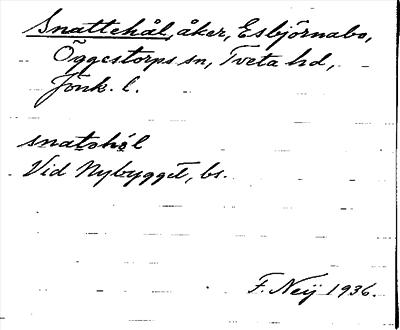 Snattehål, åker, Esbjörnabo,
Öggestorps sn, Tveta hd,
Jönk. l.
snatohǻl
Vid Nybygget, bs.
F. Neij 1936.